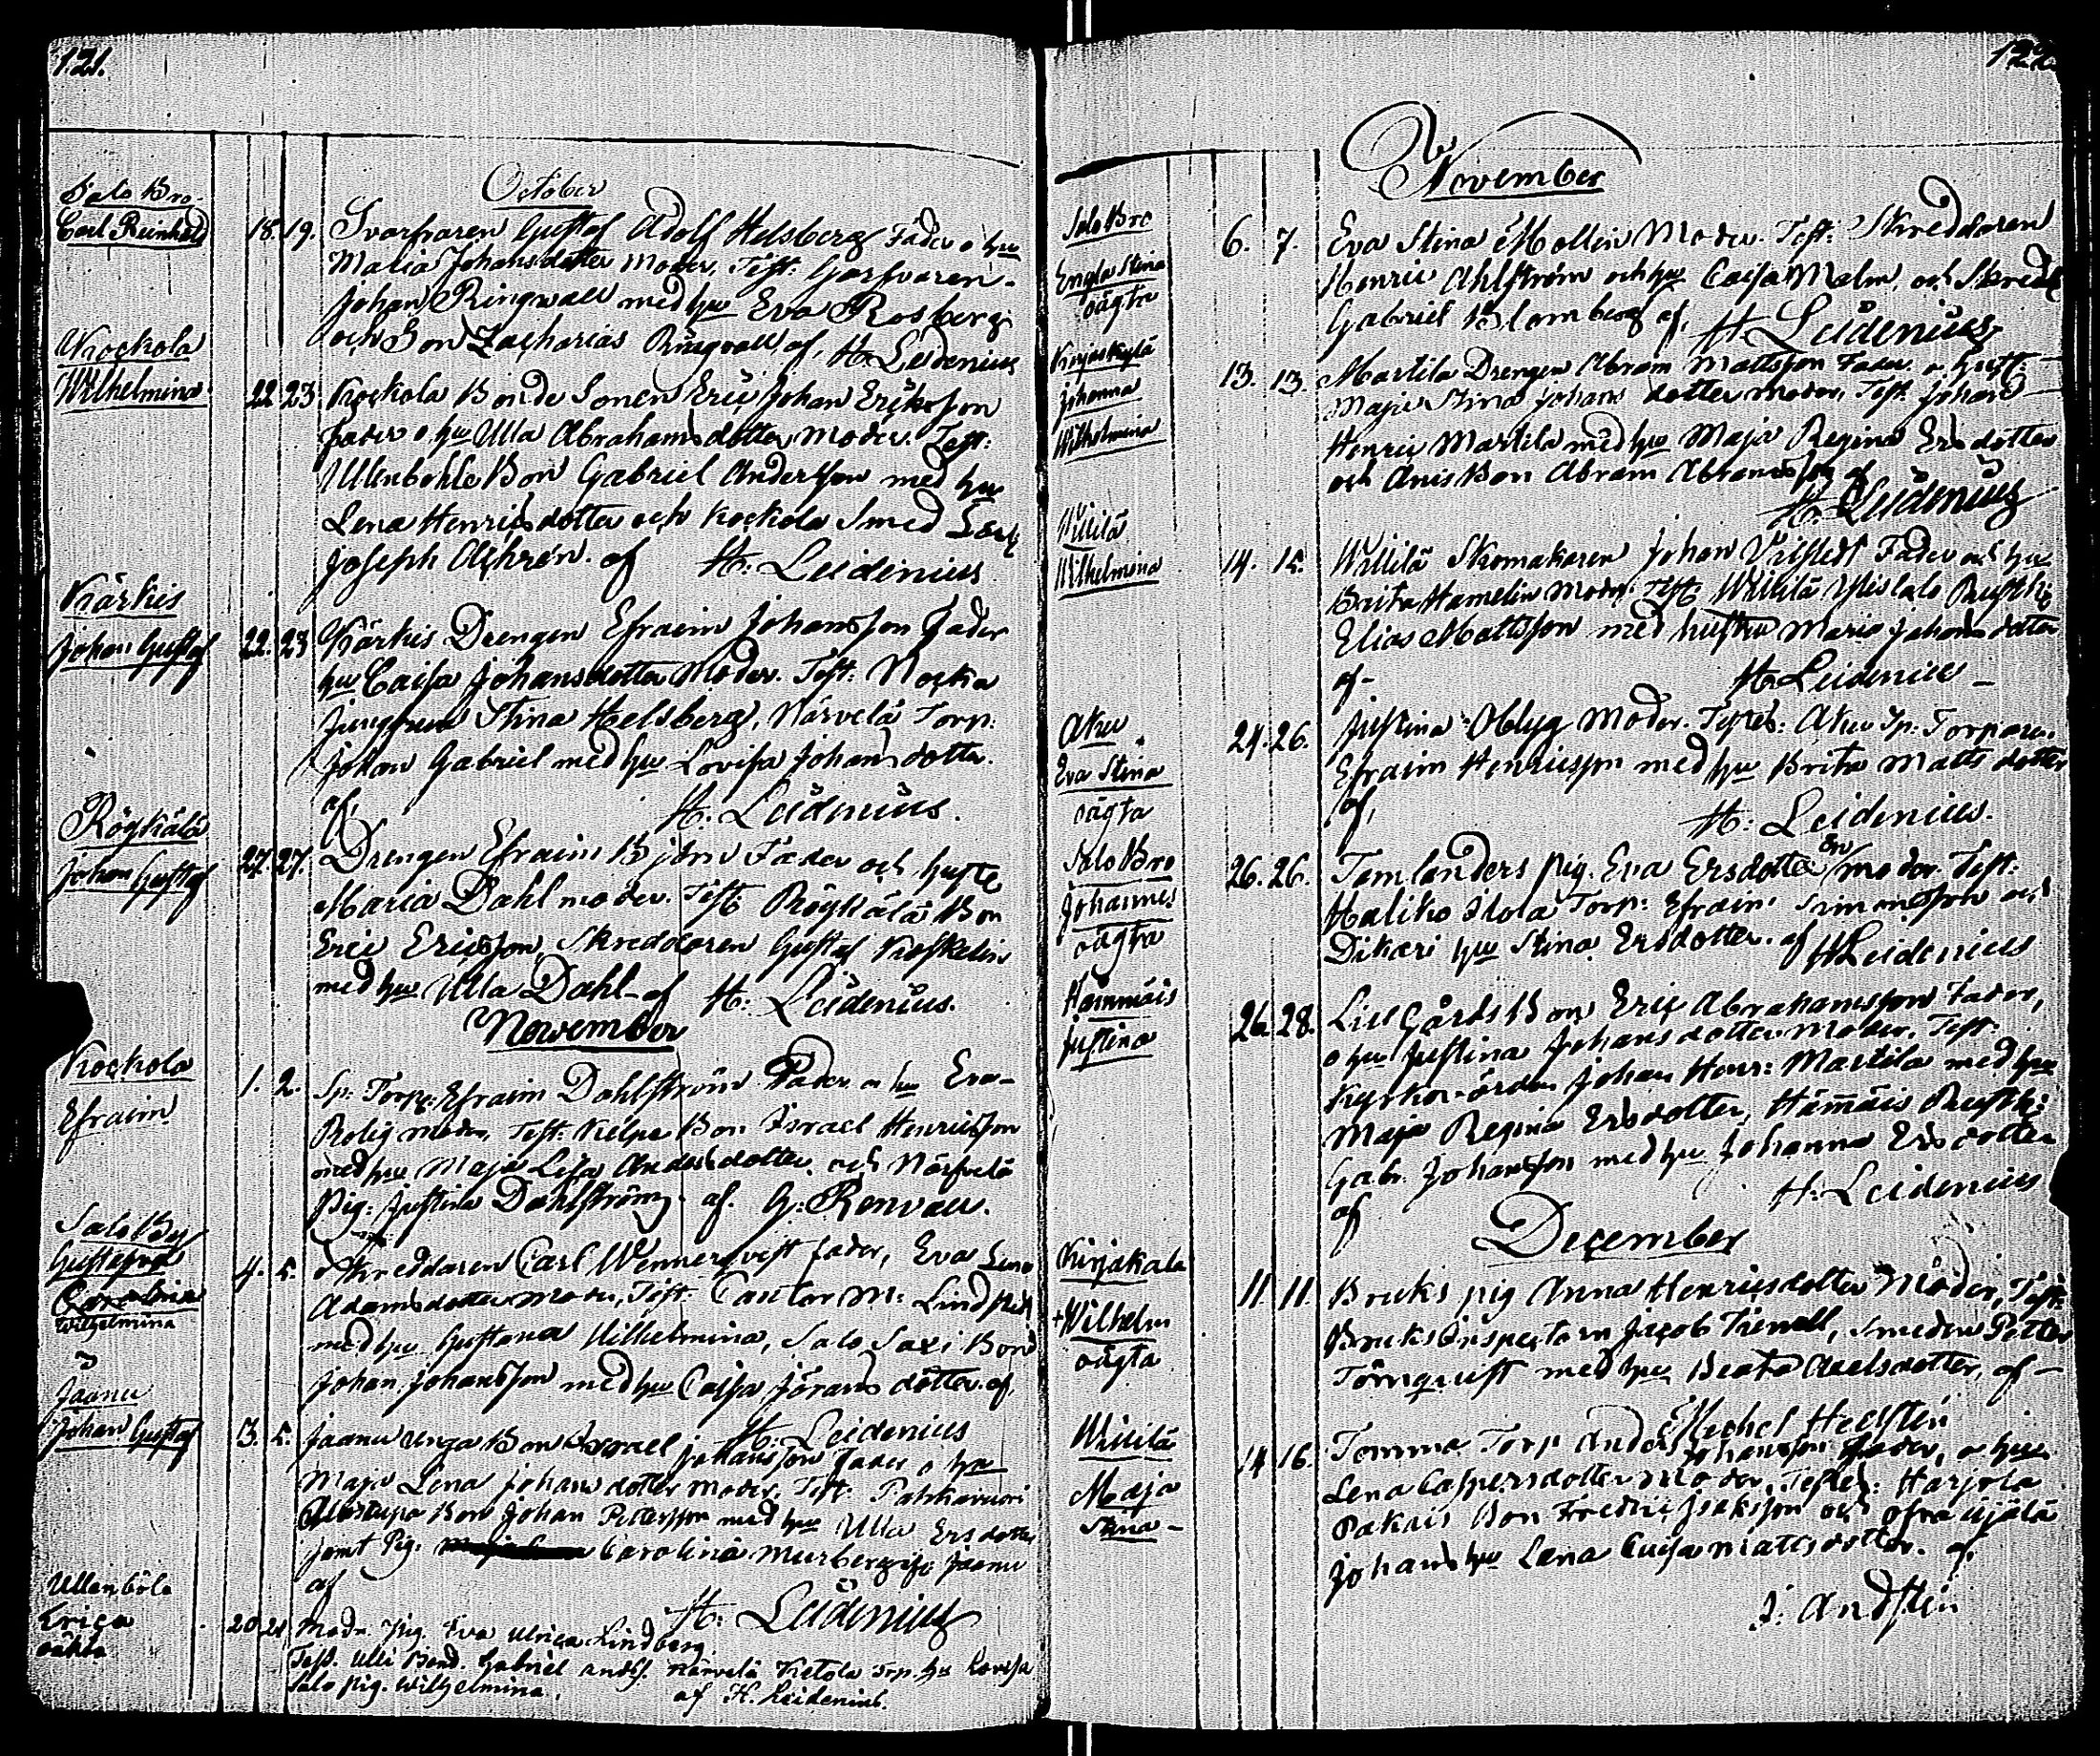 121.
October
Salo Bro
Carl Reinhold
18. 19. Svarfvaren Gustaf Adolf Helsberg Fader o hu
Maria Johansdotter Moder, Test: Garfvaren
Johan Ringwall med hu Eva Rosberg
och Son Zacharias Ringvall, af, H. Leidenius
Kockola
Wilhelmina
22 23 Kockola Bonde Sonen Eric Johan Ericksson
fader o hu Ulla Abrahamsdotter Moder. Test:
Ullenböhle Bon Gabriel Andersson med hu
Lena Henricsdotter och Kockola Smed
Joseph Öhrén. af H: Leidenius
Kärkis
Johan Gustaf
22. 23 Kärkis Drengen Efraim Johansson Fader
hu Caisa Johansdotter Moder. Test: Nocka
Jungfrun Stina Helsberg, Närvelä Torp:
Johan Gabriel med hu Lovisa Johansdotter.
af, H. Leidenius.
Röykälä
Johan Gustaf
27. 27. Drengen Efraim Björn Fader och hustr
Maria Dahl moder. Test: Röykälä Bon
Eric Ericsson, Skreddaren Gustaf Koskelin
med hu Ulla Dahl af H: Leidenius.
November
Kockola
Efraim
1. 2. Sp: Torp: Efraim Dahlström Fader o hu Eva
Rolig moder, Test: Kelpe Bon Israel Henricsson
med hu Maja Lisa Andersdotter och Närfvelä
Pig: Justina Dahlström af. G: Renvall.
Salo By
Gustafva
Carolina
Wilhelmina
4. 5. Skreddaren Carl Wennerqvist fader, Eva Lena
Adamsdotter moder, Test: Cantor M: Lindstedt
med hu Gustava Wilhelmina, Salo Saxi Bond
Johan Johansson med hu Caisa Jöransdotter af,
H: Leidenius
Jaanu
Johan Gustaf
3. 5. Jaanu unga Bon Israel Johansson fader o hu
Maja Lena Johansdotter moder, Test: Pahkavuori
Alastupa Bon Johan Pettersson med hu Ulla Ersdotter
jemt Pig: Carolina Murberg ifr Jaanu
af H: Leidenius
Ullenböle
Erica
oäkta
20 21 Modr Pig Eva Ulrica Lindberg
Test. Ulle Bond. Gabriel Anders. Närvelä Ketola Torp. hu Lovisa
Salo pig. Wilhelmina. af H. Leidenius.
122.
November
Salo Bro
Engla Stina
oägta
6. 7. Eva Stina Mollin Moder. Test: Skreddaren
Henric Ahlström och hu Caisa Malm, och Skredd
Gabriel Blomberg af, H: Leidenius
Kirjaskylä
Johanna
Wilhelmina
13. 13. Martila Drengen Abram Mattsson Fader o hust:
Maja Stina Johans dotter moder, Test: Johan
Henric Martila med hu Maja Regina Ersdotter
och Anis Bon Abram Abramsson af
H: Leidenius
Wiliilä
Wilhelmina
14. 15. Wiliilä Skomakaren Johan Vilstedt Fader och hu
Brita Hamelin Moder Test: Wiliilä Ylistalo Rusth:
Elias Mattsson med hustru Maria Johansdotter
af H: Leidenius
Aku
Eva Stina
oägta
24. 26. Justina Oblyg Moder. Testes: Aku Sp: Torparen
Efraim Henricsson med hu Brita Mattsdotter
af, H: Leidenius.
Salo Bro
Johannes
oägta
26. 26. Tamlanders pig. Eva Ersdotter En moder. Test:
Haliko Ilola Torp: Efraim Simonsson och
Dikari hu Stina Ersdotter. af H Leidenius
Hämmäis
Justina
26. 28. Lill Gårds Bon Eric Abrahamsson Fader,
o hu Justina Johansdotter Moder, Test:
Kyrkovärden Johan Henr: Martila med hu
Maja Regina Ersdotter, Hämäis Rusth:
Gabr. Johansson med hu Johanna Ersdotter
af H: Leidenius
December
Kirjakala
+Wilhelm
oägta
11. 11. Bruks pig Anna Henricsdotter Moder, Test:
Bruks Inspectorn Jacob Trenell, Smeden Petter
Törnqvist med hu Beata Axelsdotter, af
Michel Hellstén
Wiliilä
Maja
Stina
14 16. Tomma Torp Anders Johansson fader, o hu
Lena Caspersdotter Moder, Testes: Harjola
Pakais Bon Fredric Isaksson och öfra ujälä
Johans hu Lena Cajsa Mattsdotter. af
J: Andstén